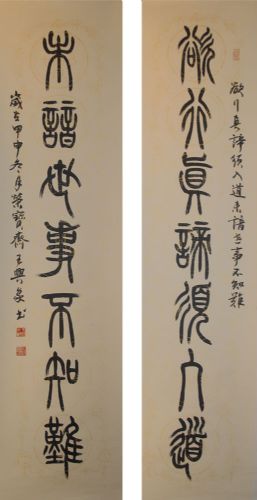 欲行真諦須入道
欲行真諦須入道未諳世事不知難
未諳世事不知難
歲在甲申冬月榮寶齋王興書